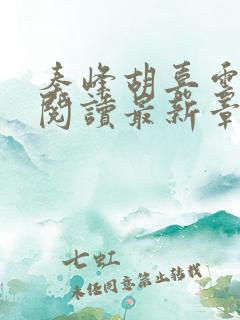 秦峰胡莫雪
閱讀最新章
七虹
未经同意禁止转载